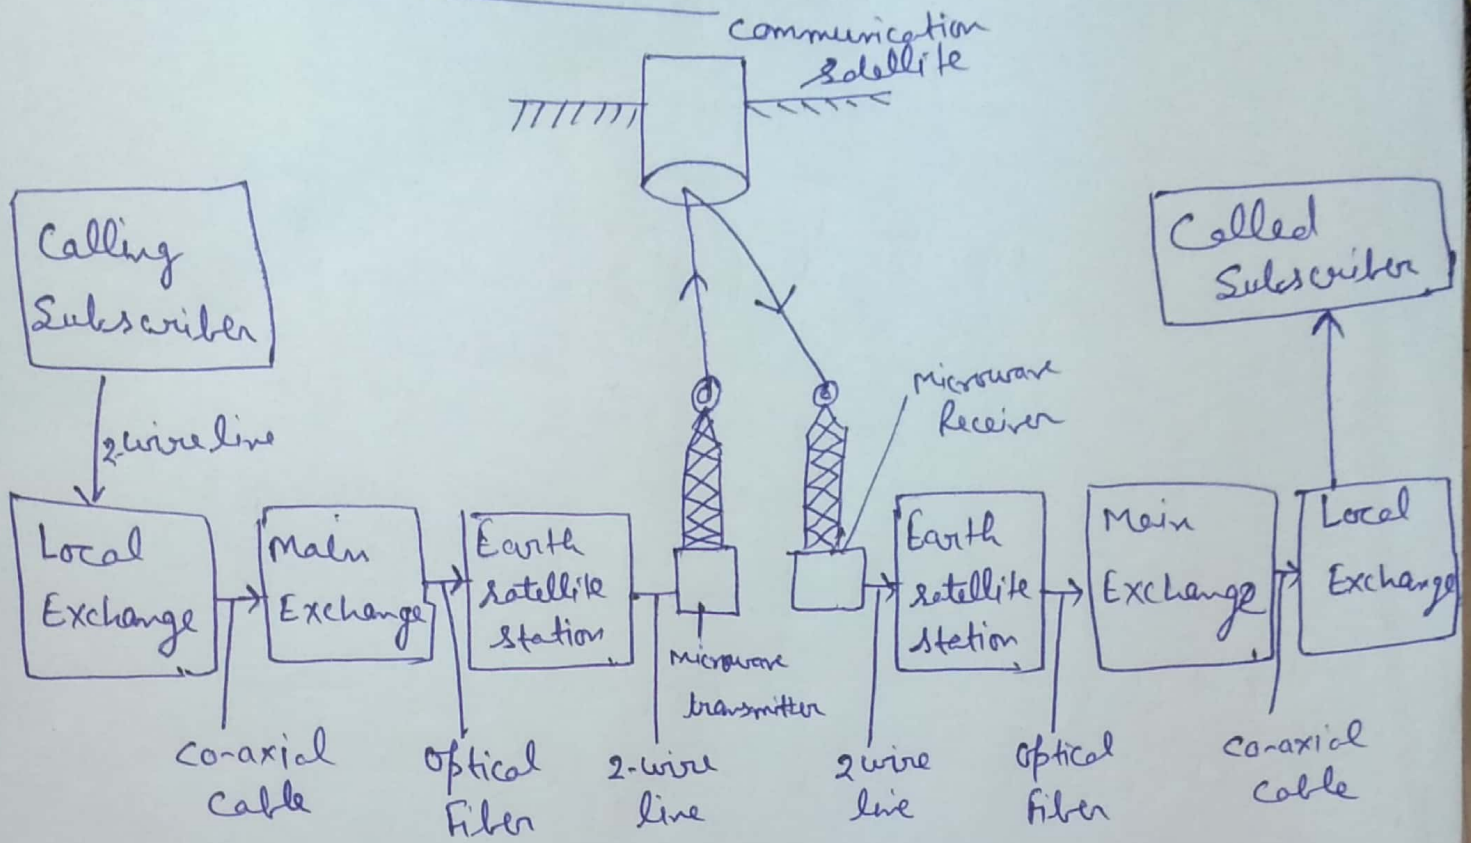 Communication
satellite
Calling
Subscriber
Called
Subscriber
2-wire line
Microwave
Receiver
Local
Exchange
Main
Exchange
Earth
satellite
station
Microwave
transmitter
Earth
satellite
station
Main
Exchange
Local
Exchange
Co-axial
Cable
Optical
Fiber
2-wire
line
2 wire
line
Optical
Fiber
Co-axial
Cable